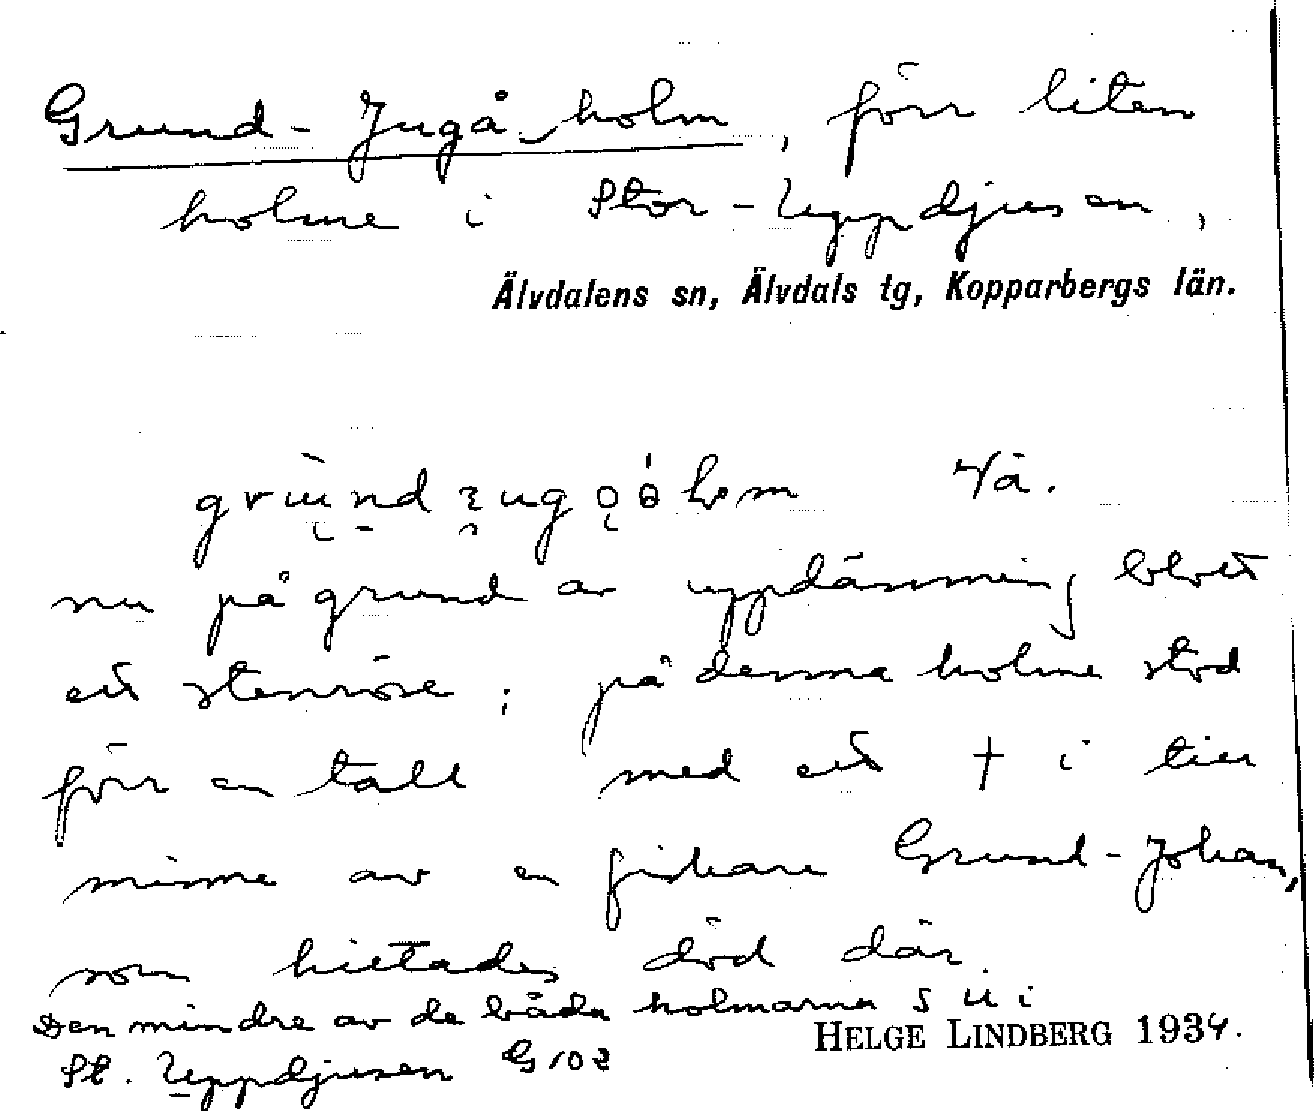 Grund-Jugåholm, förr liten
holme i Stor-Uppdjusen,
Älvdalens sn, Älvdals tg, Kopparbergs län.
nu på grund av uppdämning blott
ett stenröse; på denna holme stod
förr en tall med ett † i till
minne av en fiskare Grund-Johan,
som hittades död där.
Den mindre av de båda holmarna S ut i
St. Uppdjusen G 102
HELGE LINDBERG 1934.